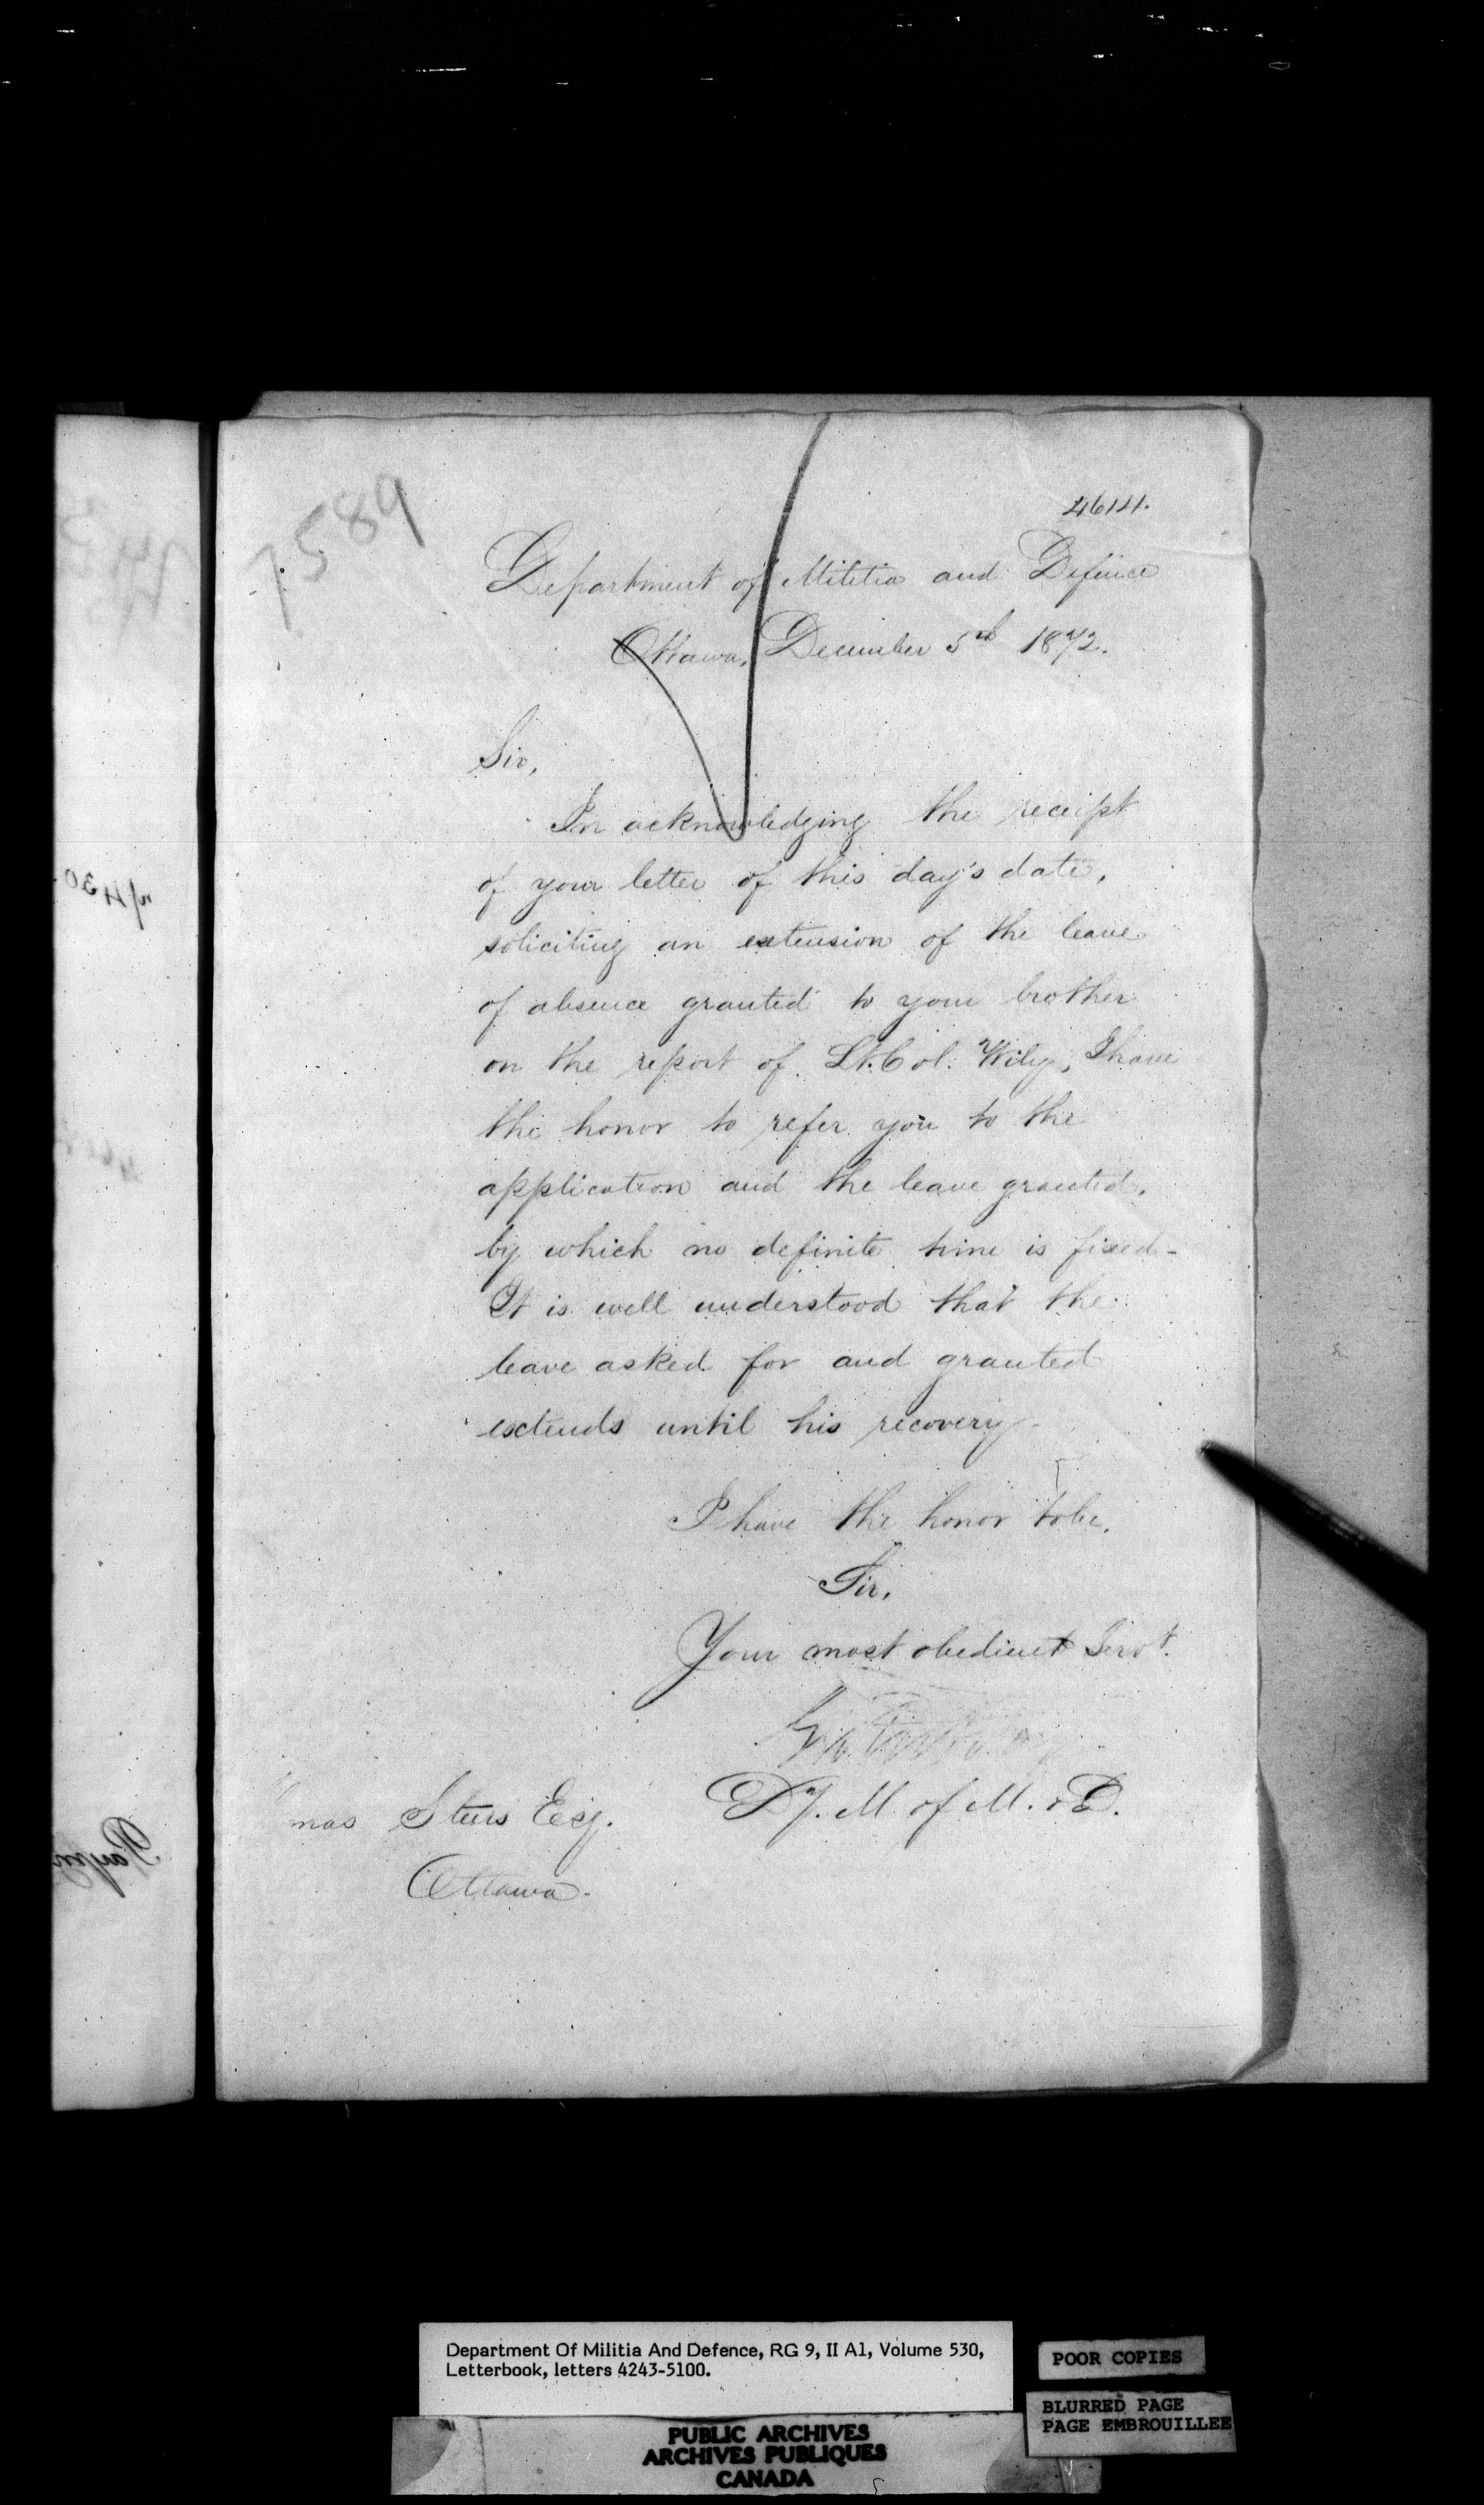 7589
4614.
Department of Militia and Defence
Ottawa, December 5th 1872.
Sir,
In acknowledging the receipt
of your letter of this day's date,
soliciting an extension of the leave
of absence granted to your brother
on the report of Lt. Col. Wily, I have
the honor to refer you to the
application and the leave granted,
by which no definite time is fixed -
It is well understood that the
leave asked for and granted
extends until his recovery.
I have the honor to be,
Sir,
Your most obedient Servt.
Dy. M. of M. & D.
mas Steers Esq.
Ottawa.
Department Of Militia And Defence, RG 9, II A1, Volume 530,
Letterbook, letters 4243-5100.
POOR COPIES
BLURRED PAGE
PAGE EMBROUILLEE
PUBLIC ARCHIVES
ARCHIVES PUBLIQUES
CANADA